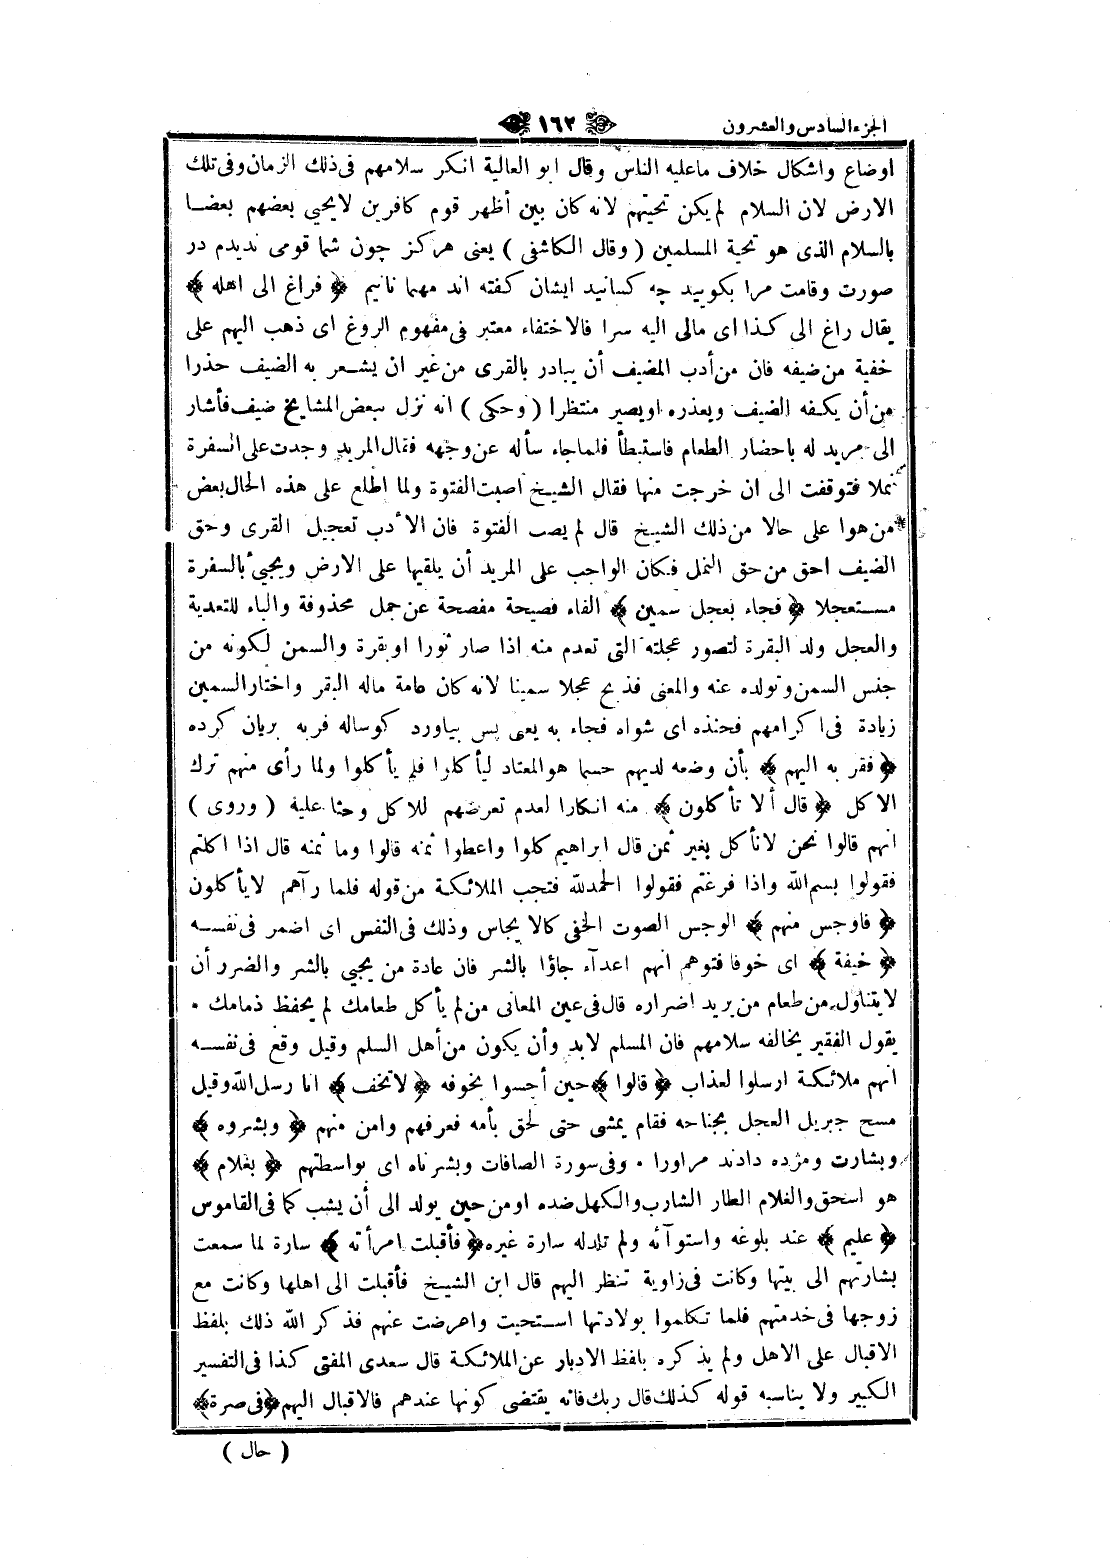 الجزء السادس والعشرون
١٦٢
اوضاع واشكال خلاف ماعليه الناس وقال ابو العالية انكر سلامهم فى ذلك الزمان وفى تلك
الارض لان السلام لم يكن تحيتهم لانه كان بين أظهر قوم كافرين لايحيي بعضهم بعضا
بالسلام الذى هو تحية المسلمين ( وقال الكاشفى ) يعنى هركز چون شما قومى نديدم در
صورت وقامت مرا بكوييد چه كسانيد ايشان كفته اند مهمانانيم ﴿ فراغ الى اهله ﴾
يقال راغ الى كذا اى مالى اليه سرا فالاختفاء معتبر فى مفهوم الروغ اى ذهب اليهم على
خفية من ضيفه فان من أدب المضيف أن يبادر بالقرى من غير ان يشعر به الضيف حذرا
من أن يكفه الضيف ويعذره اويصير منتظرا ( وحكى ) انه نزل ببعض المشايخ ضيف فأشار
الى مريد له باحضار الطعام فاستبطأ فلماجاء سأله عن وجهه فقال المريد وجدت على السفرة
نملا فتوقفت الى ان خرجت منها فقال الشيخ اصبت الفتوة ولما اطلع على هذه الحال بعض
من هوا على حالا من ذلك الشيخ قال لم يصب الفتوة فان الأدب تعجيل القرى وحق
الضيف احق من حق النمل فكان الواجب على المريد أن يلقيها على الارض ويجيئ بالسفرة
مستعجلا ﴿ فجاء بعجل سمين ﴾ الفاء فصيحة مفصحة عن جمل محذوفة والباء للتعدية
والعجل ولد البقرة لتصور عجلته التى تعدم منه اذا صار ثورا اوبقرة والسمن لكونه من
جنس السمن وتولده عنه والمعنى فذبح عجلا سمينا لانه كان عامة ماله البقر واختار السمين
زيادة فى اكرامهم فحنذه اى شواه فجاء به يعنى پس بياورد كوساله فربه بريان كرده
﴿ فقر به اليهم ﴾ بأن وضعه لديهم حسبما هوالمعتاد ليأكلوا فلم يأكلوا ولما رأى منهم ترك
الاكل ﴿ قال ألا تأكلون ﴾ منه انكارا لعدم تعرضهم للاكل وحثا عليه ( وروى )
انهم قالوا نحن لانأكل بغير ثمن قال ابراهيم كلوا واعطوا ثمنه قالوا وما ثمنه قال اذا اكلتم
فقولوا بسم الله واذا فرغتم فقولوا الحمدلله فتجب الملائكة من قوله فلما رآهم لايأكلون
﴿ فاوجس منهم ﴾ الوجس الصوت الخفى كالايجاس وذلك فى النفس اى اضمر فى نفسه
﴿ خيفة ﴾ اى خوفا فتوهم انهم اعدآء جاؤا بالشر فان عادة من يجيئ بالشر والضرر أن
لايتناول من طعام من يريد اضراره قال فى عين المعانى من لم يأكل طعامك لم يحفظ ذمامك •
يقول الفقير يخالفه سلامهم فان المسلم لابد وأن يكون من أهل السلم وقيل وقع فى نفسه
انهم ملائكة ارسلوا لعذاب ﴿ قالوا ﴾ حين أحسوا بخوفه ﴿ لاتخف ﴾ انا رسل الله وقيل
مسح جبريل العجل بجناحه فقام يمشى حتى لحق بأمه فعرفهم وامن منهم ﴿ وبشروه ﴾
وبشارت ومژده دادند مراورا • وفى سورة الصافات وبشرناه اى بواسطتهم ﴿ بغلام ﴾
هو اسحق والغلام الطار الشارب والكهل ضده اومن حين يولد الى أن يشب كما فى القاموس
﴿ عليم ﴾ عند بلوغه واستوآئه ولم تلدله سارة غيره ﴿ فأقبلت امرأته ﴾ سارة لما سمعت
بشارتهم الى بيتها وكانت فى زاوية تنظر اليهم قال ابن الشيخ فأقبلت الى اهلها وكانت مع
زوجها فى خدمتهم فلما تكلموا بولادتها استحيت واعرضت عنهم فذكر الله ذلك بلفظ
الاقبال على الاهل ولم يذكره بلفظ الادبار عن الملائكة قال سعدى المفتى كذا فى التفسير
الكبير ولا يناسبه قوله كذلك قال ربك فانه يقتضى كونها عندهم فالاقبال اليهم ﴿ فى صرة ﴾
( حال )